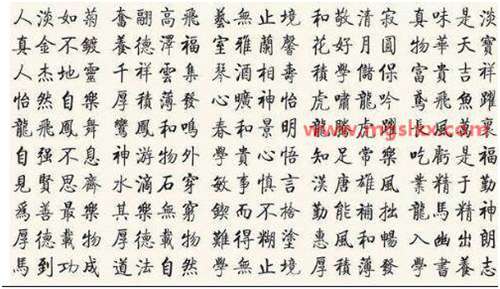 人淡如菊 奮翮高飛 藝無止境 和敬清寂 真味是淡
真金不鍍 養德澤福 室雅蘭馨 花好月圓 物華天寶
人杰地靈 千祥雲集 琴 相壽 積學儲 富貴吉
怡然自樂 厚積薄發 心曠神怡 虎嘯龍吟 鳶飛魚躍
龍飛鳳舞 鸞鳳和鳴 春和景明 龍 虎
www.mgshxx.com
自強不息 神游物外 學貴心悟 知足常樂 吃虧是福
見賢思齊 水滴石穿 敏事慎言 漢唐雄風 業精于勤
為善最樂 其樂無窮 鍥而不捨 勤能補拙 龍馬精神
厚德載物 厚德載物 難得糊塗 惠風和暢 入幽出朗
馬到功成 道法自然 學無止境 厚積薄發 學書養志